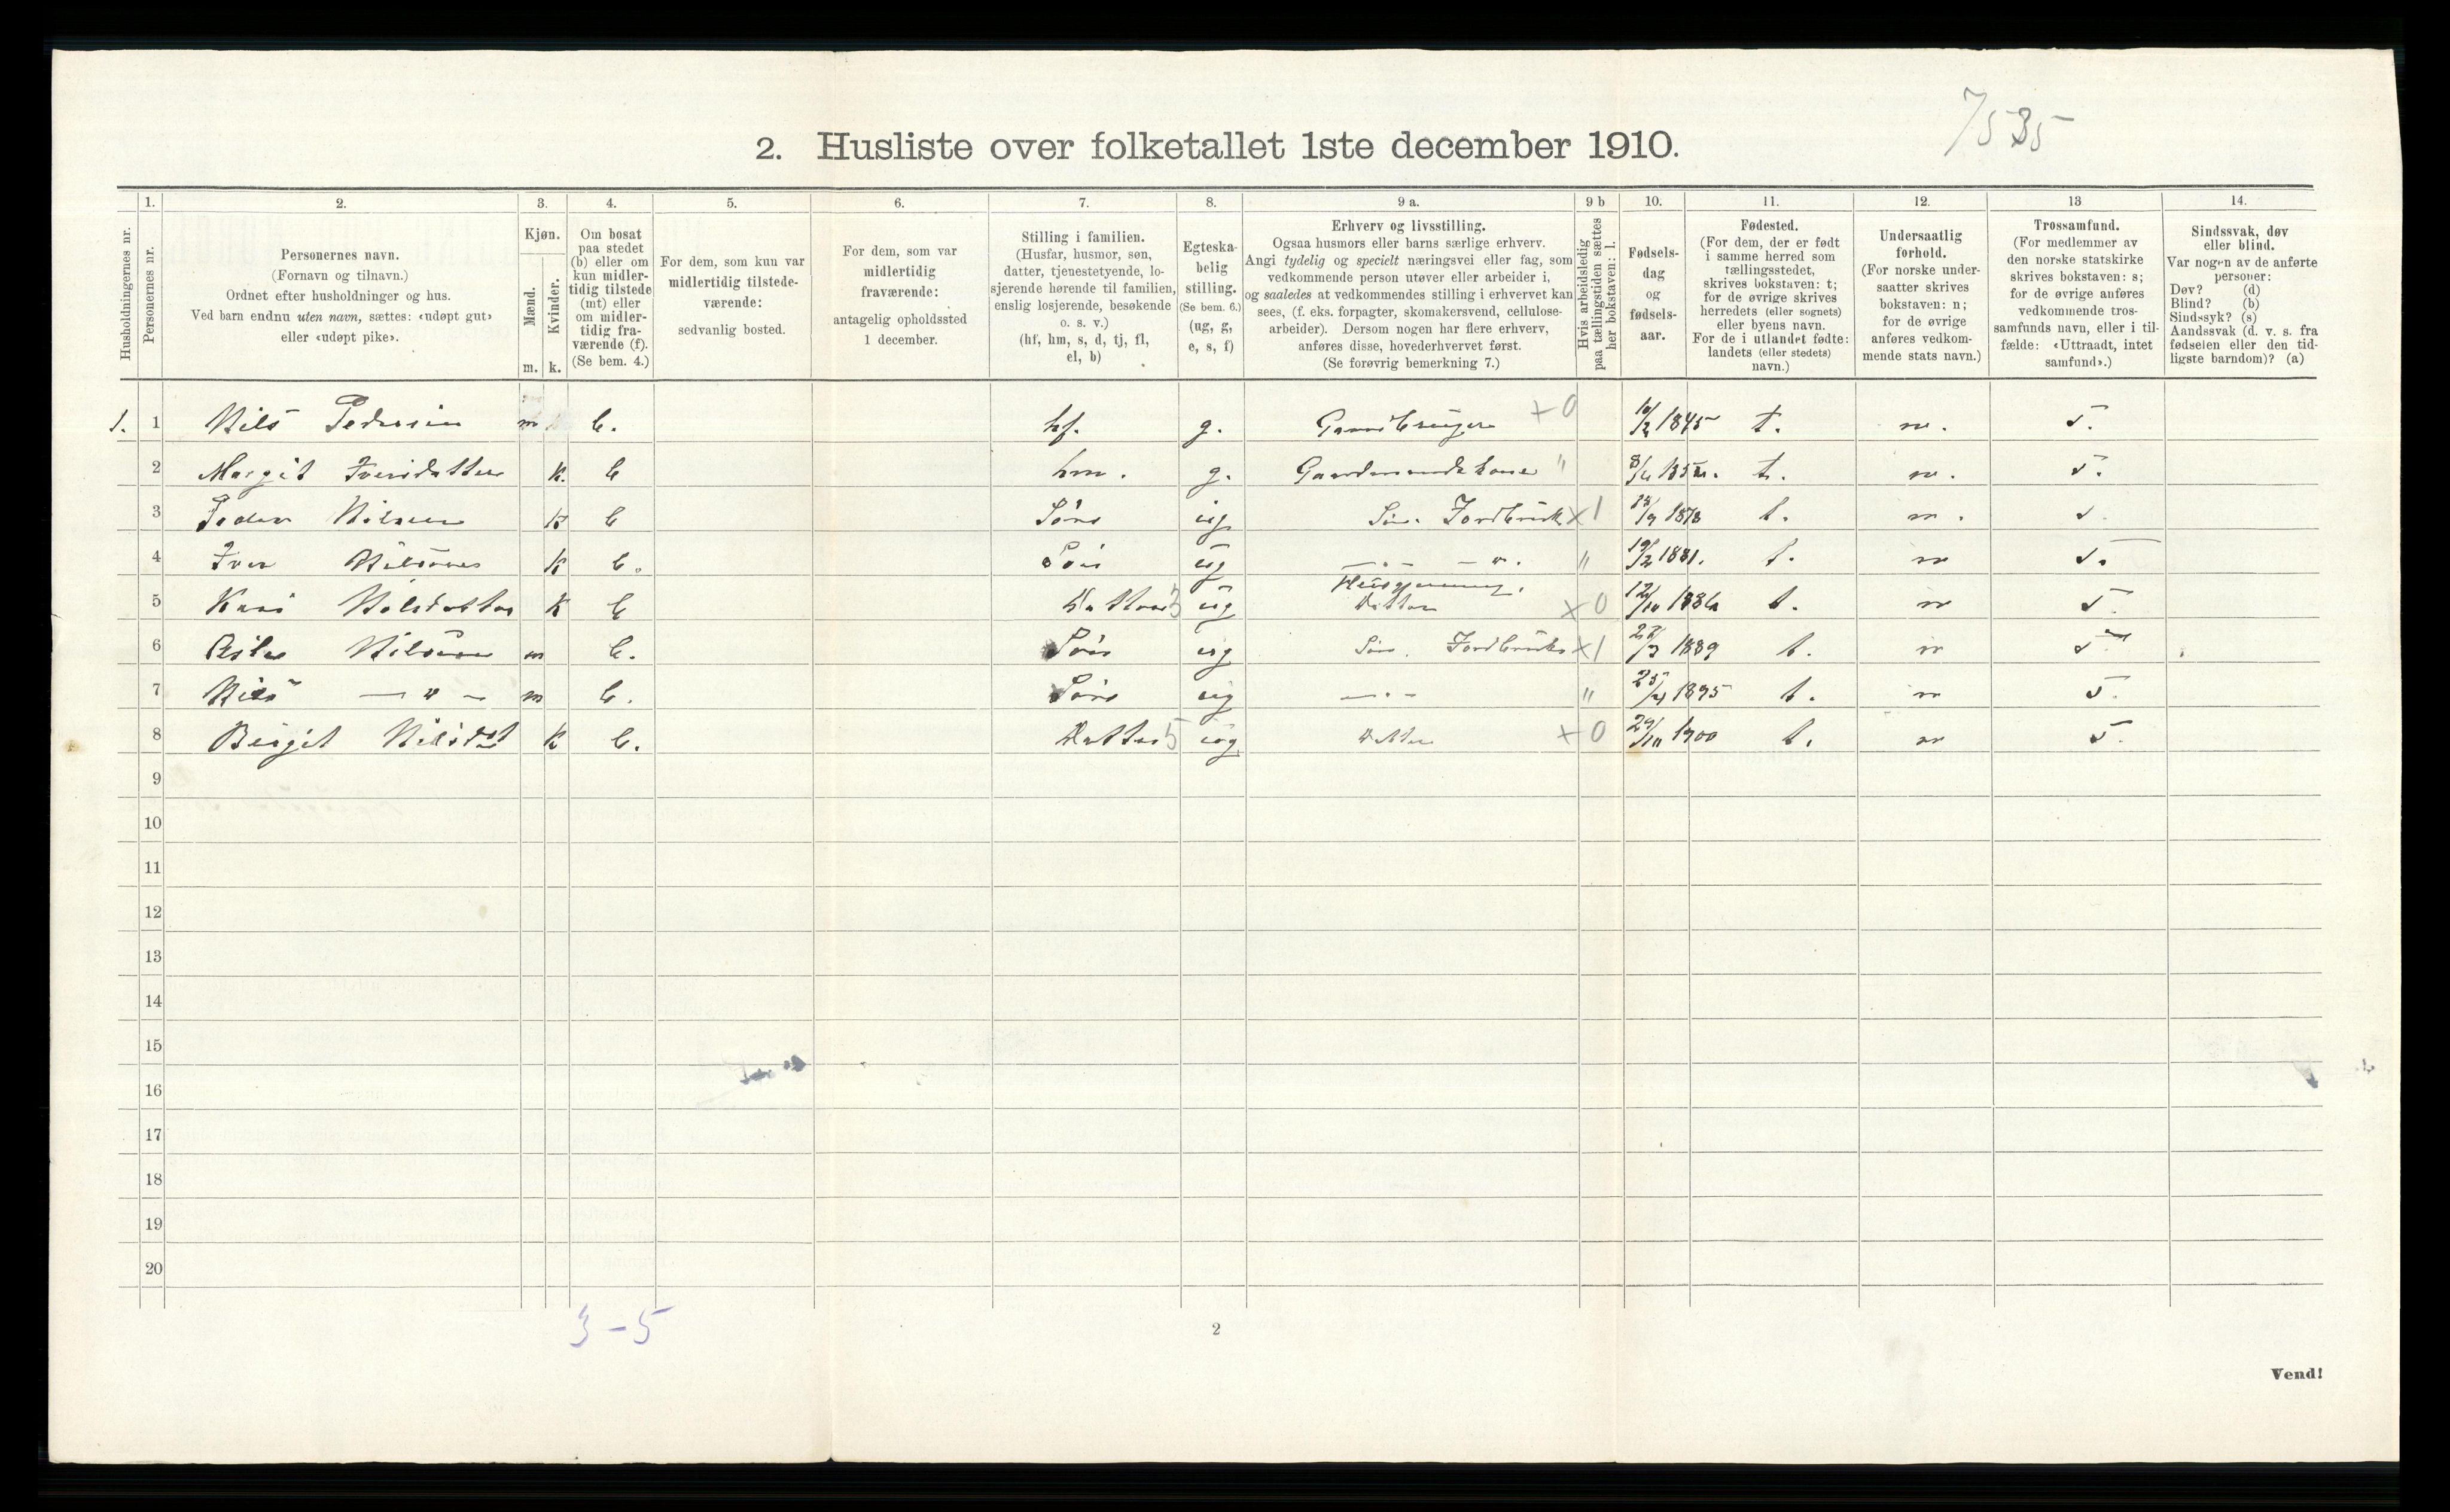 7535
2. Husliste over folketallet 1ste december 1910.
1. 2. 3. 4. 5. 6. 7. 8. 9 a. 9 b 10. 11. 12. 13 14.
Husholdningernes nr.
Personernes nr.
Personernes navn.
(Fornavn og tilnavn.)
Ordnet efter husholdninger og hus.
Ved barn endnu uten navn, sættes: «udøpt gut»
eller «udøpt pike».
Kjøn.
Mænd.
Kvinder.
m. k.
Om bosat
paa stedet
(b) eller om
kun midler-
tidig tilstede
(mt) eller
om midler-
tidig fra-
værende (f).
(Se bem. 4.)
For dem, som kun var
midlertidig tilstede-
værende:
sedvanlig bosted.
For dem, som var
midlertidig
fraværende:
antagelig opholdssted
1 december.
Stilling i familien.
(Husfar, husmor, søn,
datter, tjenestetyende, lo-
sjerende hørende til familien,
enslig losjerende, besøkende
o. s. v.)
(hf, hm, s, d, tj, fl,
el, b)
Egteska-
belig
stilling.
(Se bem. 6.)
(ug, g,
e, s, f)
Erhverv og livsstilling.
Ogsaa husmors eller barns særlige erhverv.
Angi tydelig og specielt næringsvei eller fag, som
vedkommende person utøver eller arbeider i,
og saaledes at vedkommendes stilling i erhvervet kan
sees, (f. eks. forpagter, skomakersvend, cellulose-
arbeider). Dersom nogen har flere erhverv,
anføres disse, hovederhvervet først.
(Se forøvrig bemerkning 7.)
Hvis arbeidsledig
paa tællingstiden sættes
her bokstaven: l.
Fødsels-
dag
og
fødsels-
aar.
Fødested.
(For dem, der er født
i samme herred som
tællingsstedet,
skrives bokstaven: t;
for de øvrige skrives
herredets (eller sognets)
eller byens navn.
For de i utlandet fødte:
landets (eller stedets)
navn.)
Undersaatlig
forhold.
(For norske under-
saatter skrives
bokstaven: n;
for de øvrige
anføres vedkom-
mende stats navn.)
Trossamfund.
(For medlemmer av
den norske statskirke
skrives bokstaven: s;
for de øvrige anføres
vedkommende tros-
samfunds navn, eller i til-
fælde: «Uttraadt, intet
samfund».)
Sindssvak, døv
eller blind.
Var nogen av de anførte
personer:
Døv? (d)
Blind? (b)
Sindssyk? (s)
Aandssvak (d. v. s. fra
fødselen eller den tid-
ligste barndom)? (a)
1. 1 Nils Pedersen m b. hf. g. Gaardbruger +0 10/2 1845 t. n. s.
2 Margit Iversdatter k. b hm. g. Gaardmandskone " t. n. s.
3 Peder Nilsen k b Søn ug Søn. Jordbruk x1 1878 t. n. s.
4 Iver Nilsen k b. Søn ug — " — " . " 19/2 1881. t. n s.
5 Kari Nilsdatter k b Datter 3 ug Husgjerning. Datter x0 12/10 t. n s.
6 Asle Nilsen m b. Søn ug Søn. Jordbruk x1 1889 t. n s.
7 Nils — " — m b. Søn ug — " — " 1895 t. n s.
8 Birgit Nilsdat k b. Datter 5 ug Datter +0 29/10 1900 t. n s.
9
10
11
12
13
14
15
16
17
18
19
20
3 – 5
2
Vend!